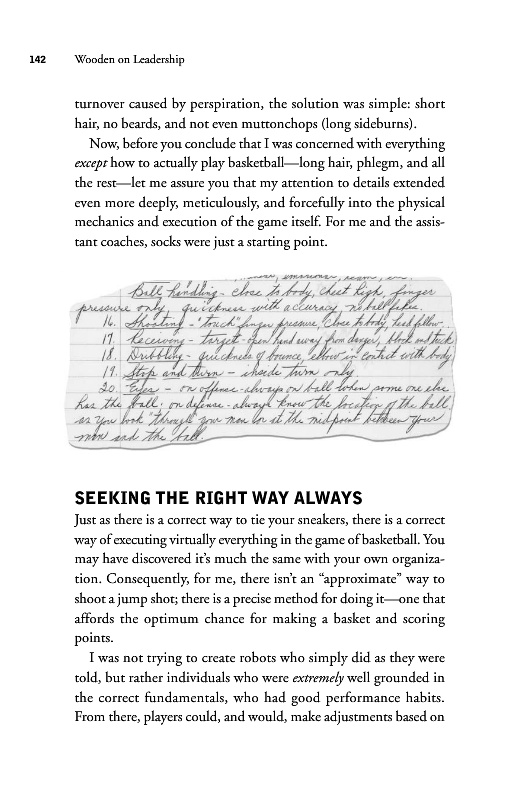 142 Wooden on Leadership
turnover caused by perspiration, the solution was simple: short
hair, no beards, and not even muttonchops (long sideburns).
Now, before you conclude that I was concerned with everything
except how to actually play basketball—long hair, phlegm, and all
the rest—let me assure you that my attention to details extended
even more deeply, meticulously, and forcefully into the physical
mechanics and execution of the game itself. For me and the assis-
tant coaches, socks were just a starting point.
Ball handling - close to body, chest high, finger
pressure only, quickness with accuracy, no ball fakes.
16. Shooting - "touch" finger pressure, close to body, head follow.
17. Receiving - target - open hand away from danger, block and tuck
18. Dribbling - quickness of bounce, elbow in contact with body
19. Stop and turn - inside turn only.
20. Eyes - on offense - always on ball when some one else
has the ball; on defense - always know the location of the ball
as you look "through" your man or at the midpoint between your
man and the ball.
SEEKING THE RIGHT WAY ALWAYS
Just as there is a correct way to tie your sneakers, there is a correct
way of executing virtually everything in the game of basketball. You
may have discovered it’s much the same with your own organiza-
tion. Consequently, for me, there isn’t an “approximate” way to
shoot a jump shot; there is a precise method for doing it—one that
affords the optimum chance for making a basket and scoring
points.
I was not trying to create robots who simply did as they were
told, but rather individuals who were extremely well grounded in
the correct fundamentals, who had good performance habits.
From there, players could, and would, make adjustments based on